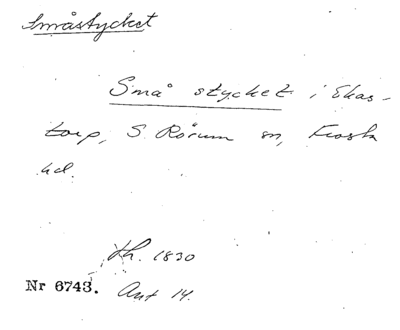 Småstycket
Små stycket i Ekas-
torp, S. Rörum sn, Frosta
hd.
Lh. 1830
Nr 6743. Ant 14.